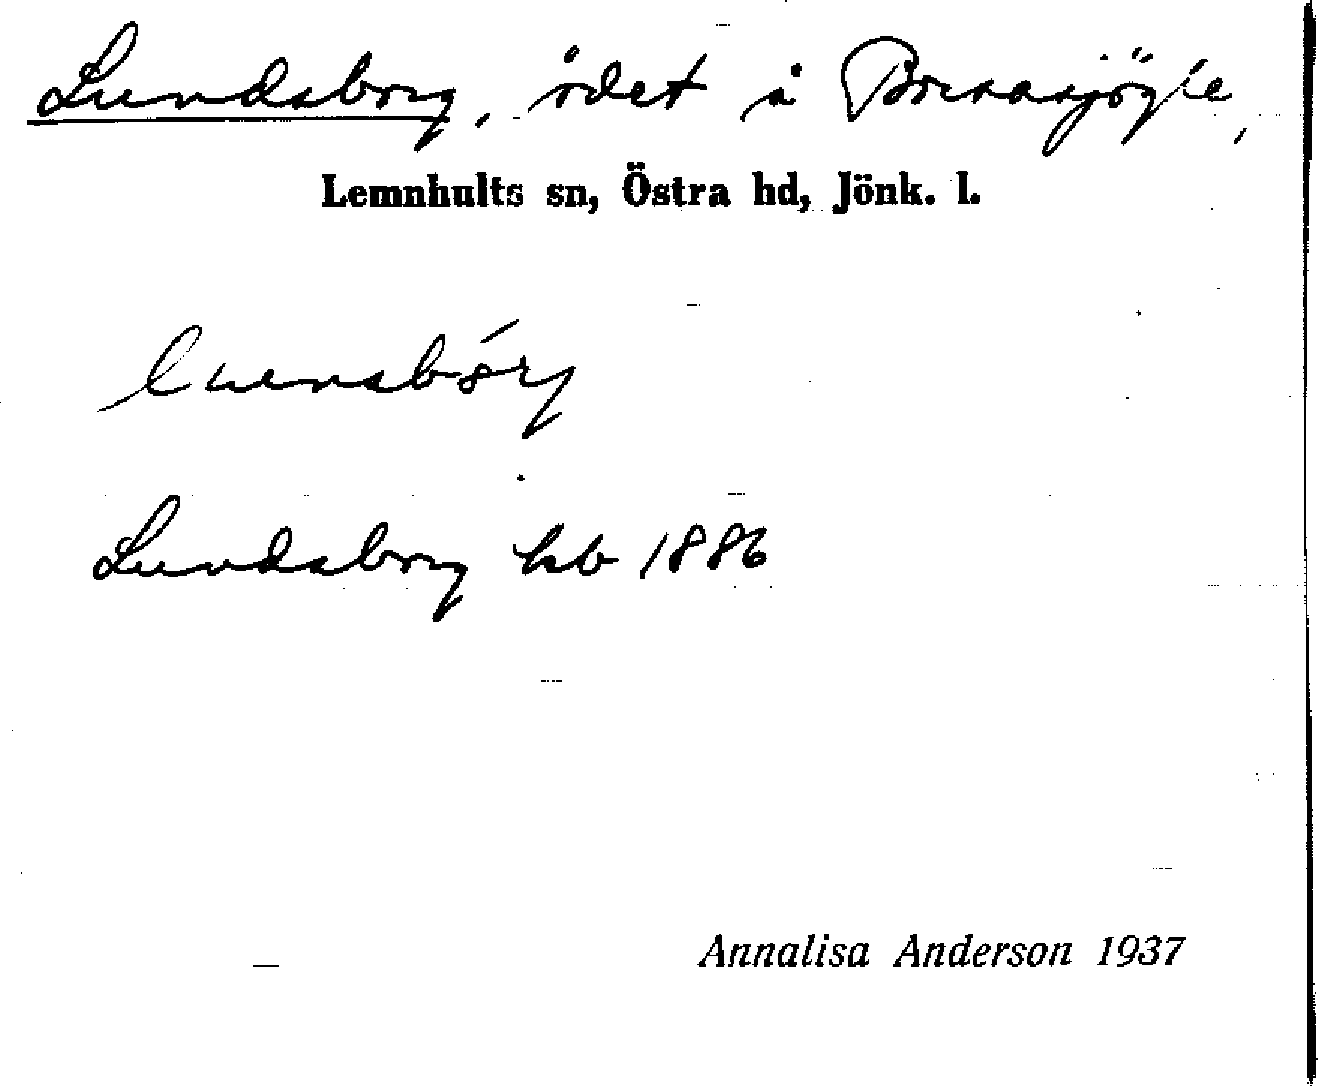 Lundsborg, ödet å
Lemnhults sn, Östra hd, Jönk. l.
Lundsborg hb 1886
Annalisa Anderson 1937